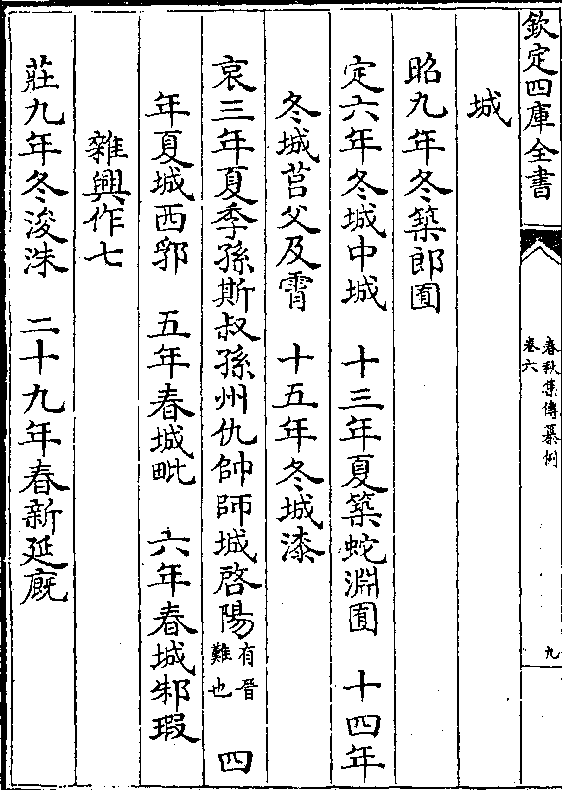 欽定四庫全書
春秋集傳纂例
卷六
九
城
昭九年冬築郎囿
定六年冬城中城 十三年夏築蛇淵囿 十四年
冬城莒父及霄 十五年冬城漆
哀三年夏季孫斯叔孫州仇帥師城啓陽有晉難也 四
年夏城西郛 五年春城毗 六年春城邾瑕
雜興作七
莊九年冬浚洙 二十九年春新延廐